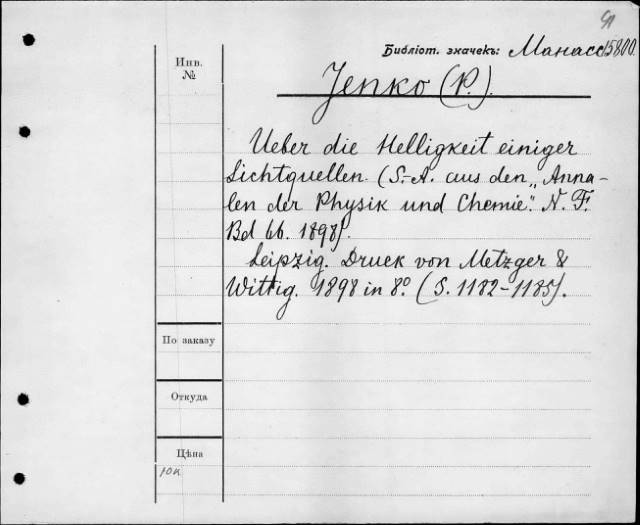 Библіот. значекъ: Манасс 15800.
Инв.
№
Jenko (P.).
Ueber die Helligkeit einiger
Lichtquellen. (S.-A. aus den „Anna-
len der Physik und Chemie". N. F.
Bd 66. 1898).
Leipzig. Druck von Metzger &
Wittig. 1898 in 8º. (S. 1182-1185).
По заказу
Откуда
Цѣна
10к